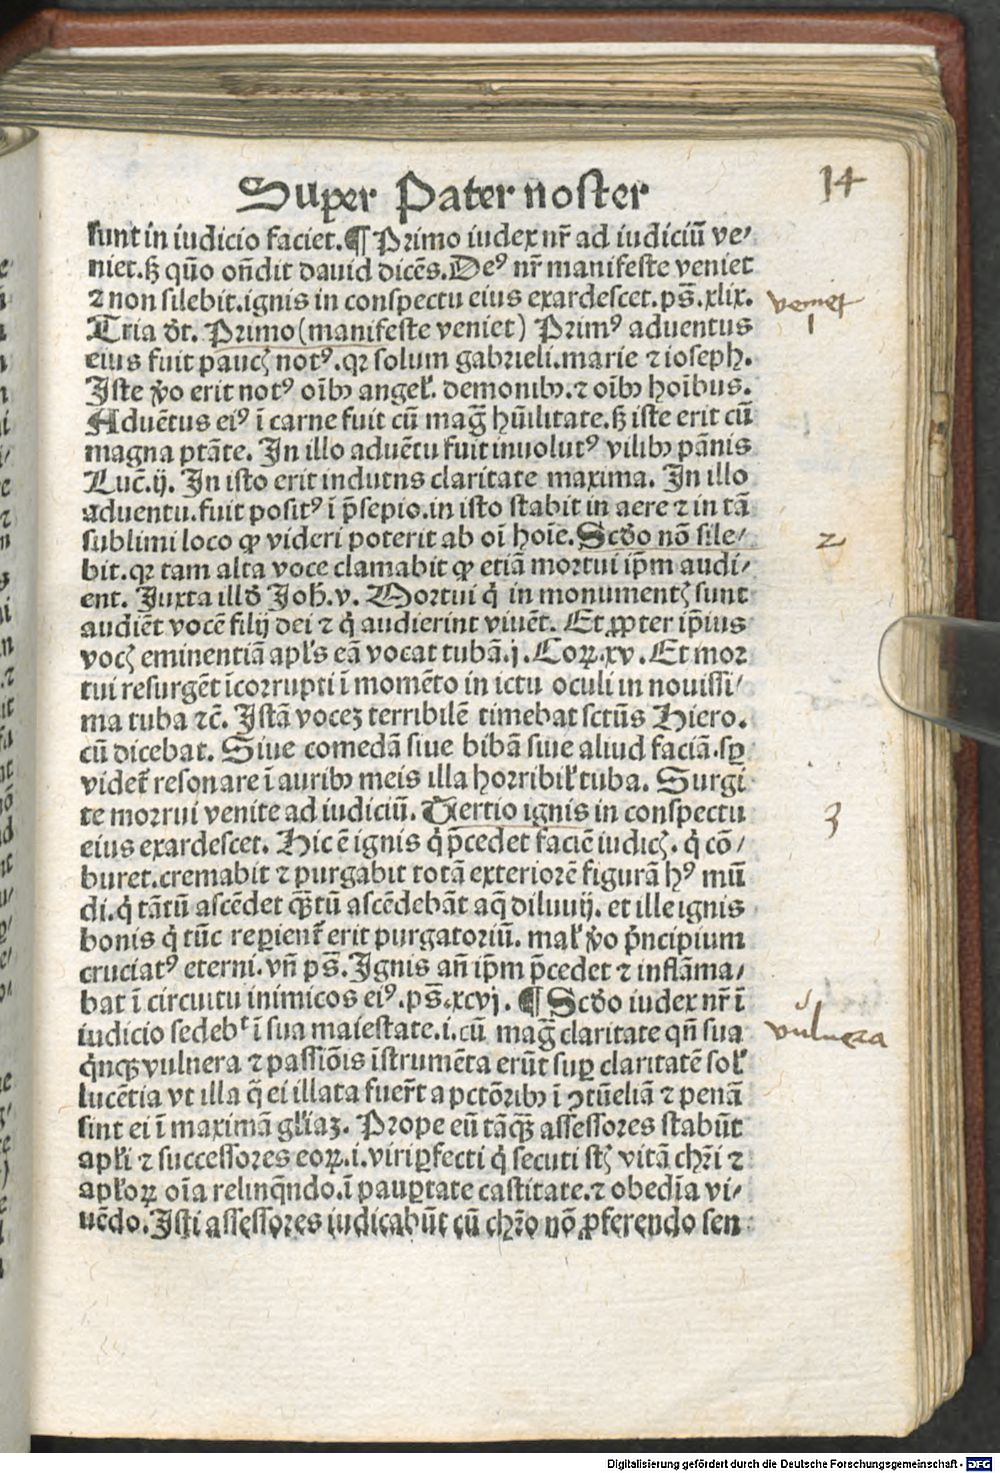 Super Pater noster
14
sunt in iudicio faciet.¶ Primo iudex nr̄ ad iudiciū ve/
niet.ꝫ quō on̄dit dauid dicēs.Deꝰ nr̄ manifeste veniet
⁊ non silebit.ignis in conspectu eius exardescet.ps̄.xlix.
veniet
Tria dr̄t. Primo (manifeste veniet) Primꝰ aduentus
1
eius fuit paucꝭ notꝰ.qr solum gabrieli.marie ⁊ ioseph.
Iste ꝟo erit notꝰ oībꝫ angeł. demonibꝫ.⁊ oībꝫ hoībus.
Aduētus eiꝰ ī carne fuit cū maḡ hūilitate.ꝫ iste erit cū
magna ptāte. In illo aduētu fuit inuolutꝰ vilibꝫ pānis
Luc̄.ij. In isto erit indutus claritate maxima. In illo
aduentu.fuit positꝰ ī p̄sepio.in isto stabit in aere ⁊ in tā
sublimi loco ꝙ videri poterit ab oī hoīe. Scđo nō sile/
2
bit.qr tam alta voce clamabit ꝙ etiā mortui ip̄m audi/
ent. Iuxta illđ Joh̄.v. Mortui q̇ in monumentꝭ sunt
audiēt vocē filij dei ⁊ q̇ audierint viuēt. Et ꝓpter ip̄ius
vocꝭ eminentiā apl's eā vocat tubā.j.Coꝝ.xv.Et mor
tui resurgēt īcorrupti ī momēto in ictu oculi in nouissi/
ma tuba ⁊c̄. Istā vocez terribilē timebat sctūs Hiero.
cū dicebat. Siue comedā siue bibā siue aliud faciā.sꝑ
videt̄ resonare ī auribꝫ meis illa horribił tuba. Surgi
te mortui venite ad iudiciū. Tertio ignis in conspectu
3
eius exardescet. Hic ē ignis q̇ p̄cedet faciē iudicꝭ. q̇ cō/
buret.cremabit ⁊ purgabit totā exteriorē figurā hꝰ mū
di.q̇ tātū ascēdet qꝫ̄tū ascēdebāt aq̄ diluuij. et ille ignis
bonis q̇ tūc reperient̄ erit purgatoriū. mał ꝟo p̄ncipium
cruciatꝰ eterni.vn̄ ps̄. Ignis an̄ ip̄m p̄cedet ⁊ inflāma/
bat ī circuitu inimicos eiꝰ.ps̄.xcvj. ¶ Scđo iudex nr̄ ī
iudicio sedebᵗ ī sua maiestate.i.cū maḡ claritate qn̄ sua
vulnera
q̇nqꝫ vulnera ⁊ passiōis īstrumēta erūt suꝑ claritatē soł
lucētia vt illa q̄ ei illata fuer̄t a pctōribꝫ ī ꝯtūeliā ⁊ penā
sint ei ī maximā gl'iaꝫ. Prope eū tāqꝫ̄ assessores stabūt
apl'i ⁊ successores eoꝝ.i.viri ꝑfecti q̇ secuti sꝭ vitā chr̄i ⁊
apl'oꝝ oīa relinq̄ndo.ī pauꝑtate castitate.⁊ obedīa vi/
uēdo. Isti assessores iudicabūt cū chr̄o nō ꝓferendo sen
Digitalisierung gefördert durch die Deutsche Forschungsgemeinschaft - DFG